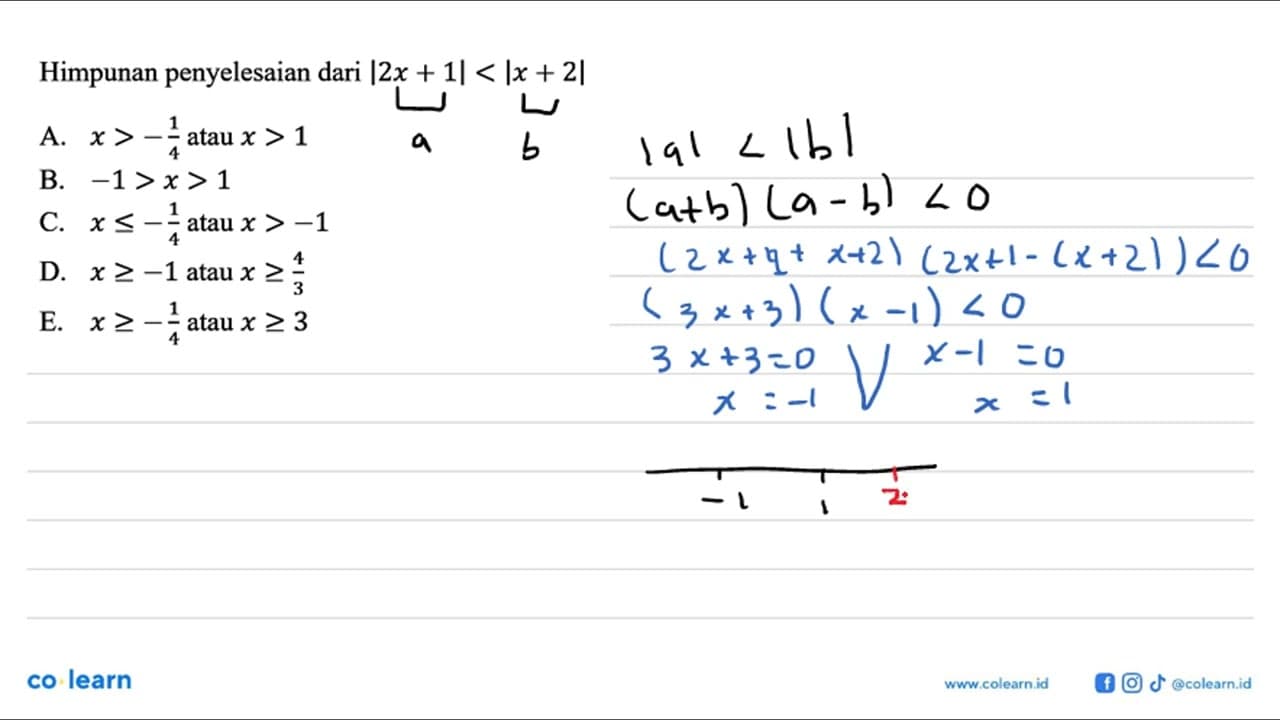 Himpunan penyelesaian dari |2x + 1| < |x + 2|
a b
A. x > -1/4 atau x > 1
B. -1 > x > 1
C. x ≤ -1/4 atau x > -1
D. x ≥ -1 atau x ≥ 4/3
E. x ≥ -1/4 atau x ≥ 3
|a| < |b|
(a+b) (a-b) < 0
(2x+1+ x+2) (2x+1-(x+2)) < 0
(3x+3) (x-1) < 0
3x+3=0 V x-1 =0
x = -1 x = 1
-1 1 2
co learn
www.colearn.id @colearn.id